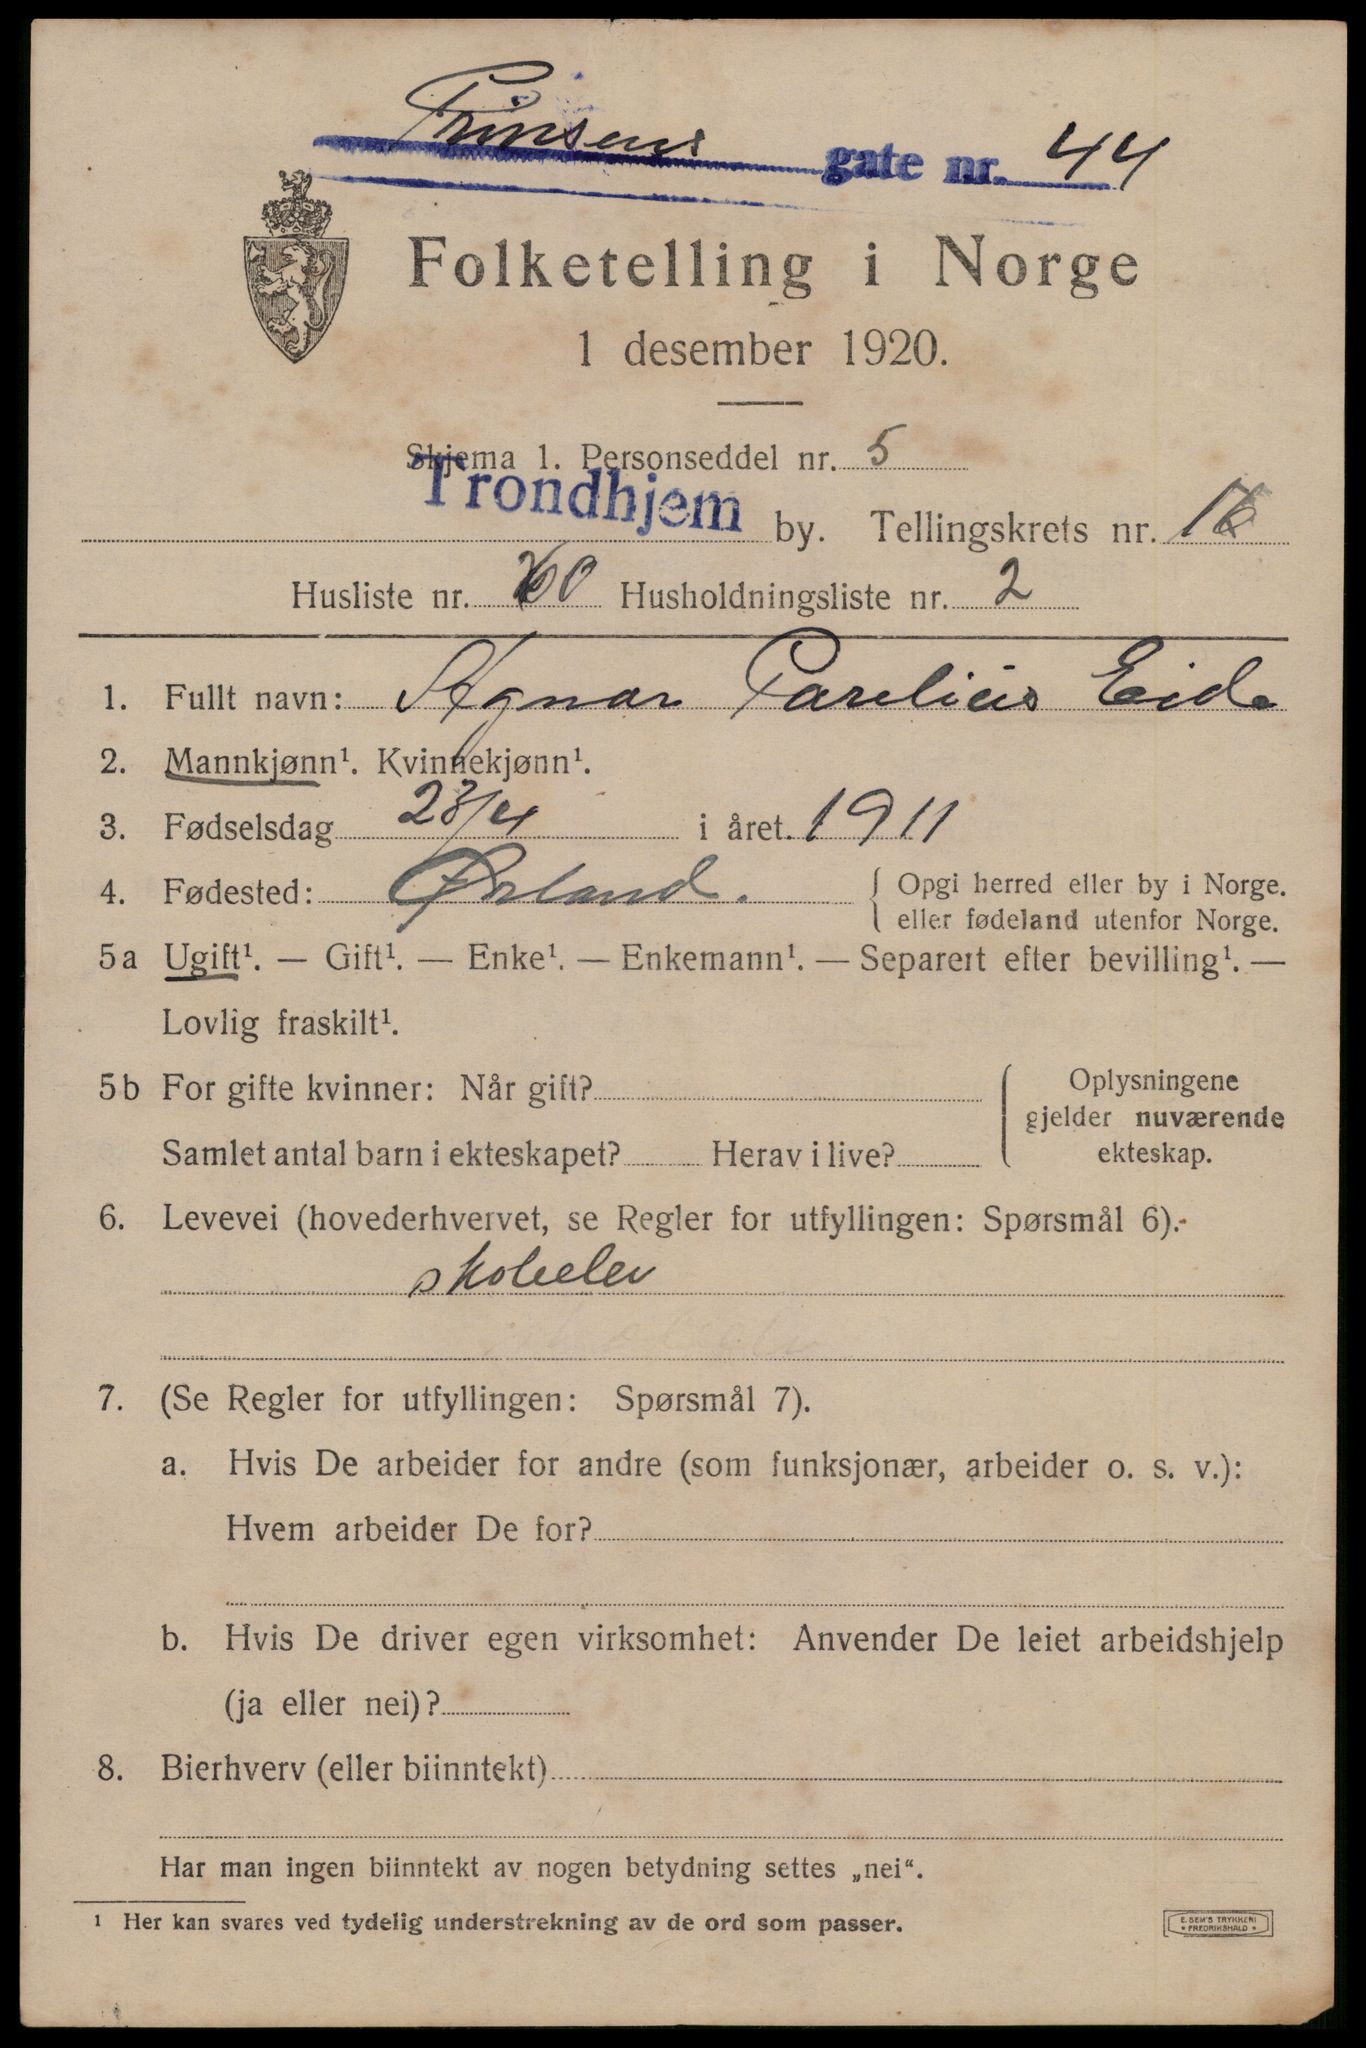 Prinsens gate nr. 44
Folketelling i Norge
1 desember 1920.
Skjema 1. Personseddel nr. 5
Trondhjem by. Tellingskrets nr.
Husliste nr. 60 Husholdningsliste nr. 2
1. Fullt navn: Agnar Parelius Eide
2. Mannkjønn¹. Kvinnekjønn¹.
3. Fødselsdag 23/4 i året 1911
4. Fødested: Ørland. { Opgi herred eller by i Norge.
eller fødeland utenfor Norge.
5a Ugift¹. — Gift¹. — Enke¹. — Enkemann¹. — Separert efter bevilling¹. —
Lovlig fraskilt¹.
5b For gifte kvinner: Når gift?
Samlet antal barn i ekteskapet? Herav i live?
Oplysningene
gjelder nuværende
ekteskap.
6. Levevei (hovederhvervet, se Regler for utfyllingen: Spørsmål 6).
skoleelev
7. (Se Regler for utfyllingen: Spørsmål 7).
a. Hvis De arbeider for andre (som funksjonær, arbeider o. s. v.):
Hvem arbeider De for?
b. Hvis De driver egen virksomhet: Anvender De leiet arbeidshjelp
(ja eller nei)?
8. Bierhverv (eller biinntekt)
Har man ingen biinntekt av nogen betydning settes „nei“.
¹ Her kan svares ved tydelig understrekning av de ord som passer.
E. SEM'S TRYKKERI
• FREDRIKSHALD •